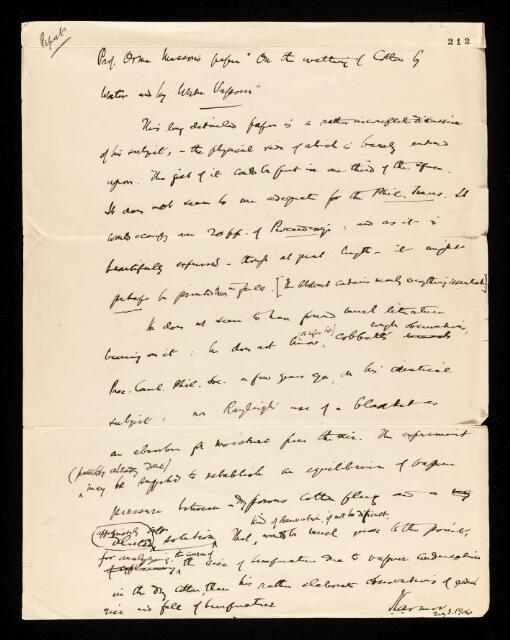 Report
212
Prof. Orme Masson's paper "On the wetting of Cotton by
Water and by Water Vapour"
This long detailed paper is a rather discussion
of his subject, – the physical side of which is barely entered
upon. The gist of it could be put in one third of the space.
It does not seem to me adequate for the Phil. Trans. It
would occupy some 20 pp. of Proceedings: and as it is
beautifully expressed – though at great length – it might
perhaps be printed there in full. [The abstract contains nearly everything essential]
He does not seem to have found much literature
bearing on it: he does not (refer to) Cobbett's rough observations,
Proc. Camb. Phil. Soc. a few years ago, on his identical
subject; nor Rayleigh's use of a blanket as
an absorber for moisture from the air. The experiment
(possibly already done)
may be suggested to establish an equilibrium of vapour
pressure between a dry porous cotton plug and a
kind of observation, if not too difficult
solution, that, would be much more to the point,
for analysing the
the rise of temperature due to vapour condensation
in the dry cotton, than his rather elaborate observations of
rise and fall of temperature
J Larmor
1904